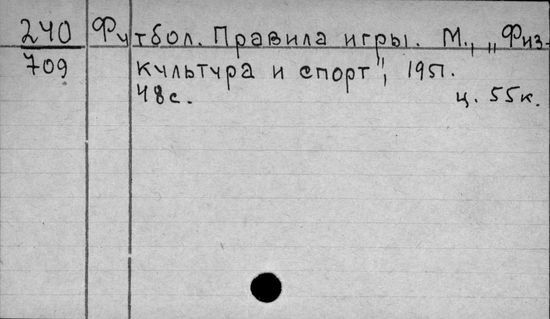 240 Футбол. Правила игры. М., „Физ-
709 культура и спорт", 1951.
48с. ц. 55к.